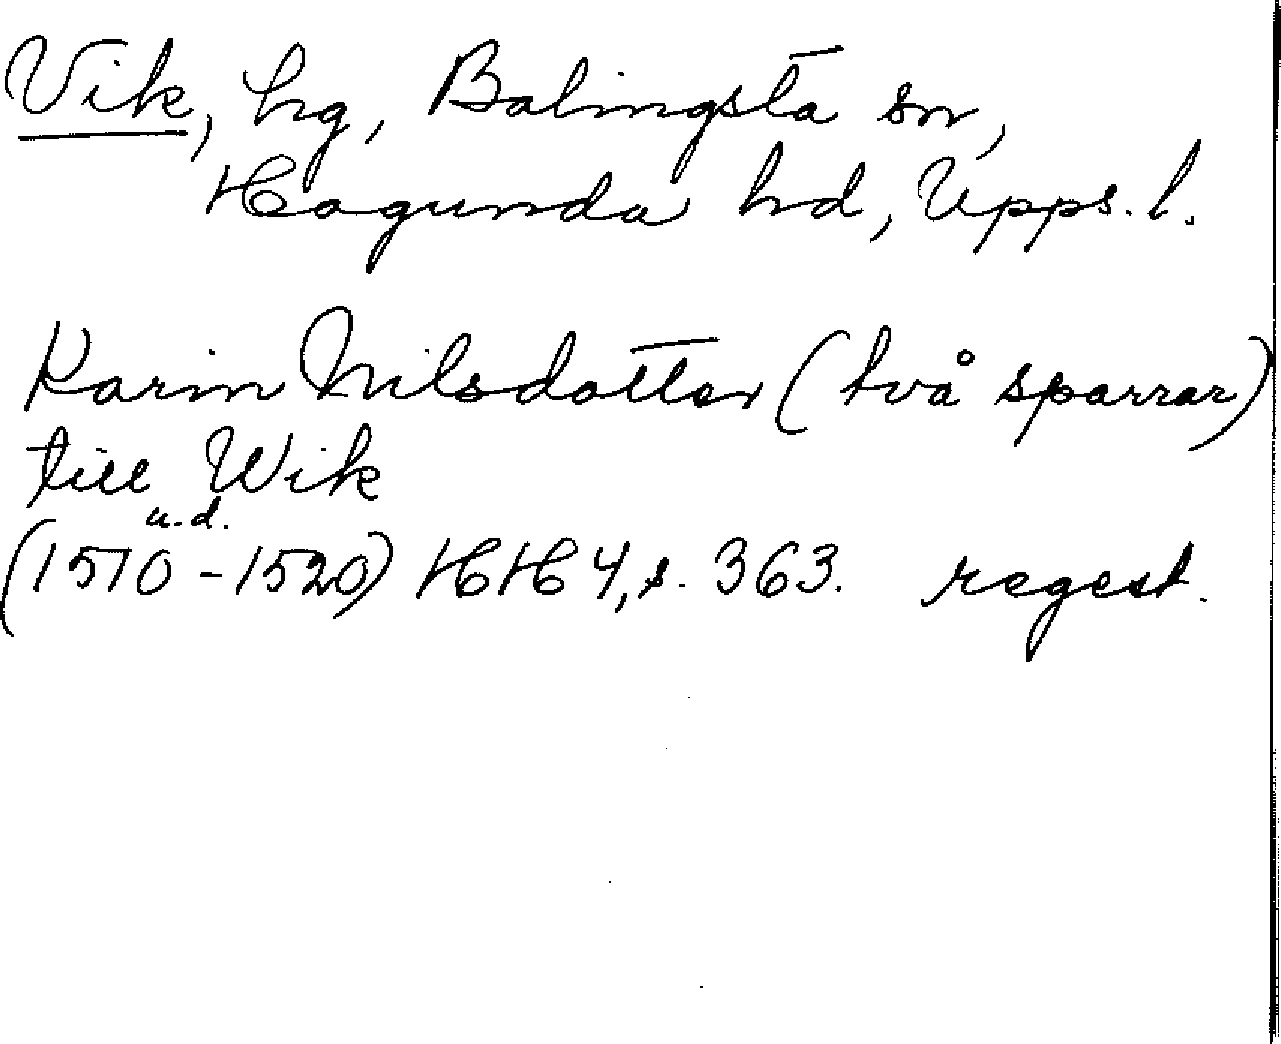 Vik, hg, Balingsta sn,
Hagunda hd, Upps. l.
Karin Nilsdotter (två sparrar)
till Wik
u.d.
(1510-1520) HH 4, s. 363. regest.